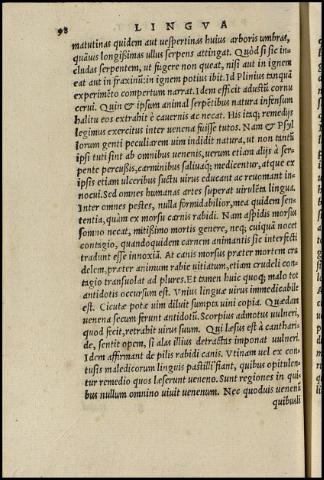 98 LINGVA
matutinas quidem aut uespertinas huius arboris umbras,
quãuis longißimas ullus serpens attingat. Quòd si sic in-
cludas serpentem, ut fugere non queat, nisi aut in ignem
eat aut in fraxinũ: in ignem potius ibit. Id Plinius tanquã
experimẽto compertum narrat. Idem efficit adustũ cornu
cerui. Quin & ipsum animal serpẽtibus natura infensum
halitu eos extrahit è cauernis ac necat. His itaq; remedijs
legimus exercitus inter uenena fuisse tutos. Nam & Psyl
lorum genti peculiarem uim indidit natura, ut non tantũ
ipsi tuti sint ab omnibus uenenis, uerum etiam alijs à ser-
pente percußis, carminibus saliuaq; medicentur, atque ex
ipsis etiam ulceribus suctu uirus educant ac reuomant in-
nocui. Sed omnes humanas artes superat uirulẽta lingua.
Inter omnes pestes, nulla formidabilior, mea quidem sen-
tentia, quàm ex morsu canis rabidi. Nam aspidis morsus
somno necat, mitißimo mortis genere, neq; cuiquã nocet
contagio, quandoquidem carnem animantis sic interfecti
tradunt esse innoxiã. At canis morsus præter mortem cru
delem, præter animum rabie uitiatum, etiam crudeli con-
tagio transuolat ad plures. Et tamen huic quoq; malo tot
antidotis occursum est. Vnius linguæ uirus immedicabile
est. Cicutæ potæ uim diluit sumpta uini copia. Quædam
uenena secum ferunt antidotũ. Scorpius admotus uulneri,
quod fecit, retrahit uirus suum. Qui læsus est à canthari-
de, sentit opem, si alas illius detractas imponat uulneri.
Idem affirmant de pilis rabidi canis. Vtinam uel ex con-
tusis maledicorum linguis pastilli fiant, quibus opitulen-
tur remedio quos læserunt ueneno. Sunt regiones in qui-
bus nullum omnino uiuit uenenum. Nec quoduis uenenũ
quibusli